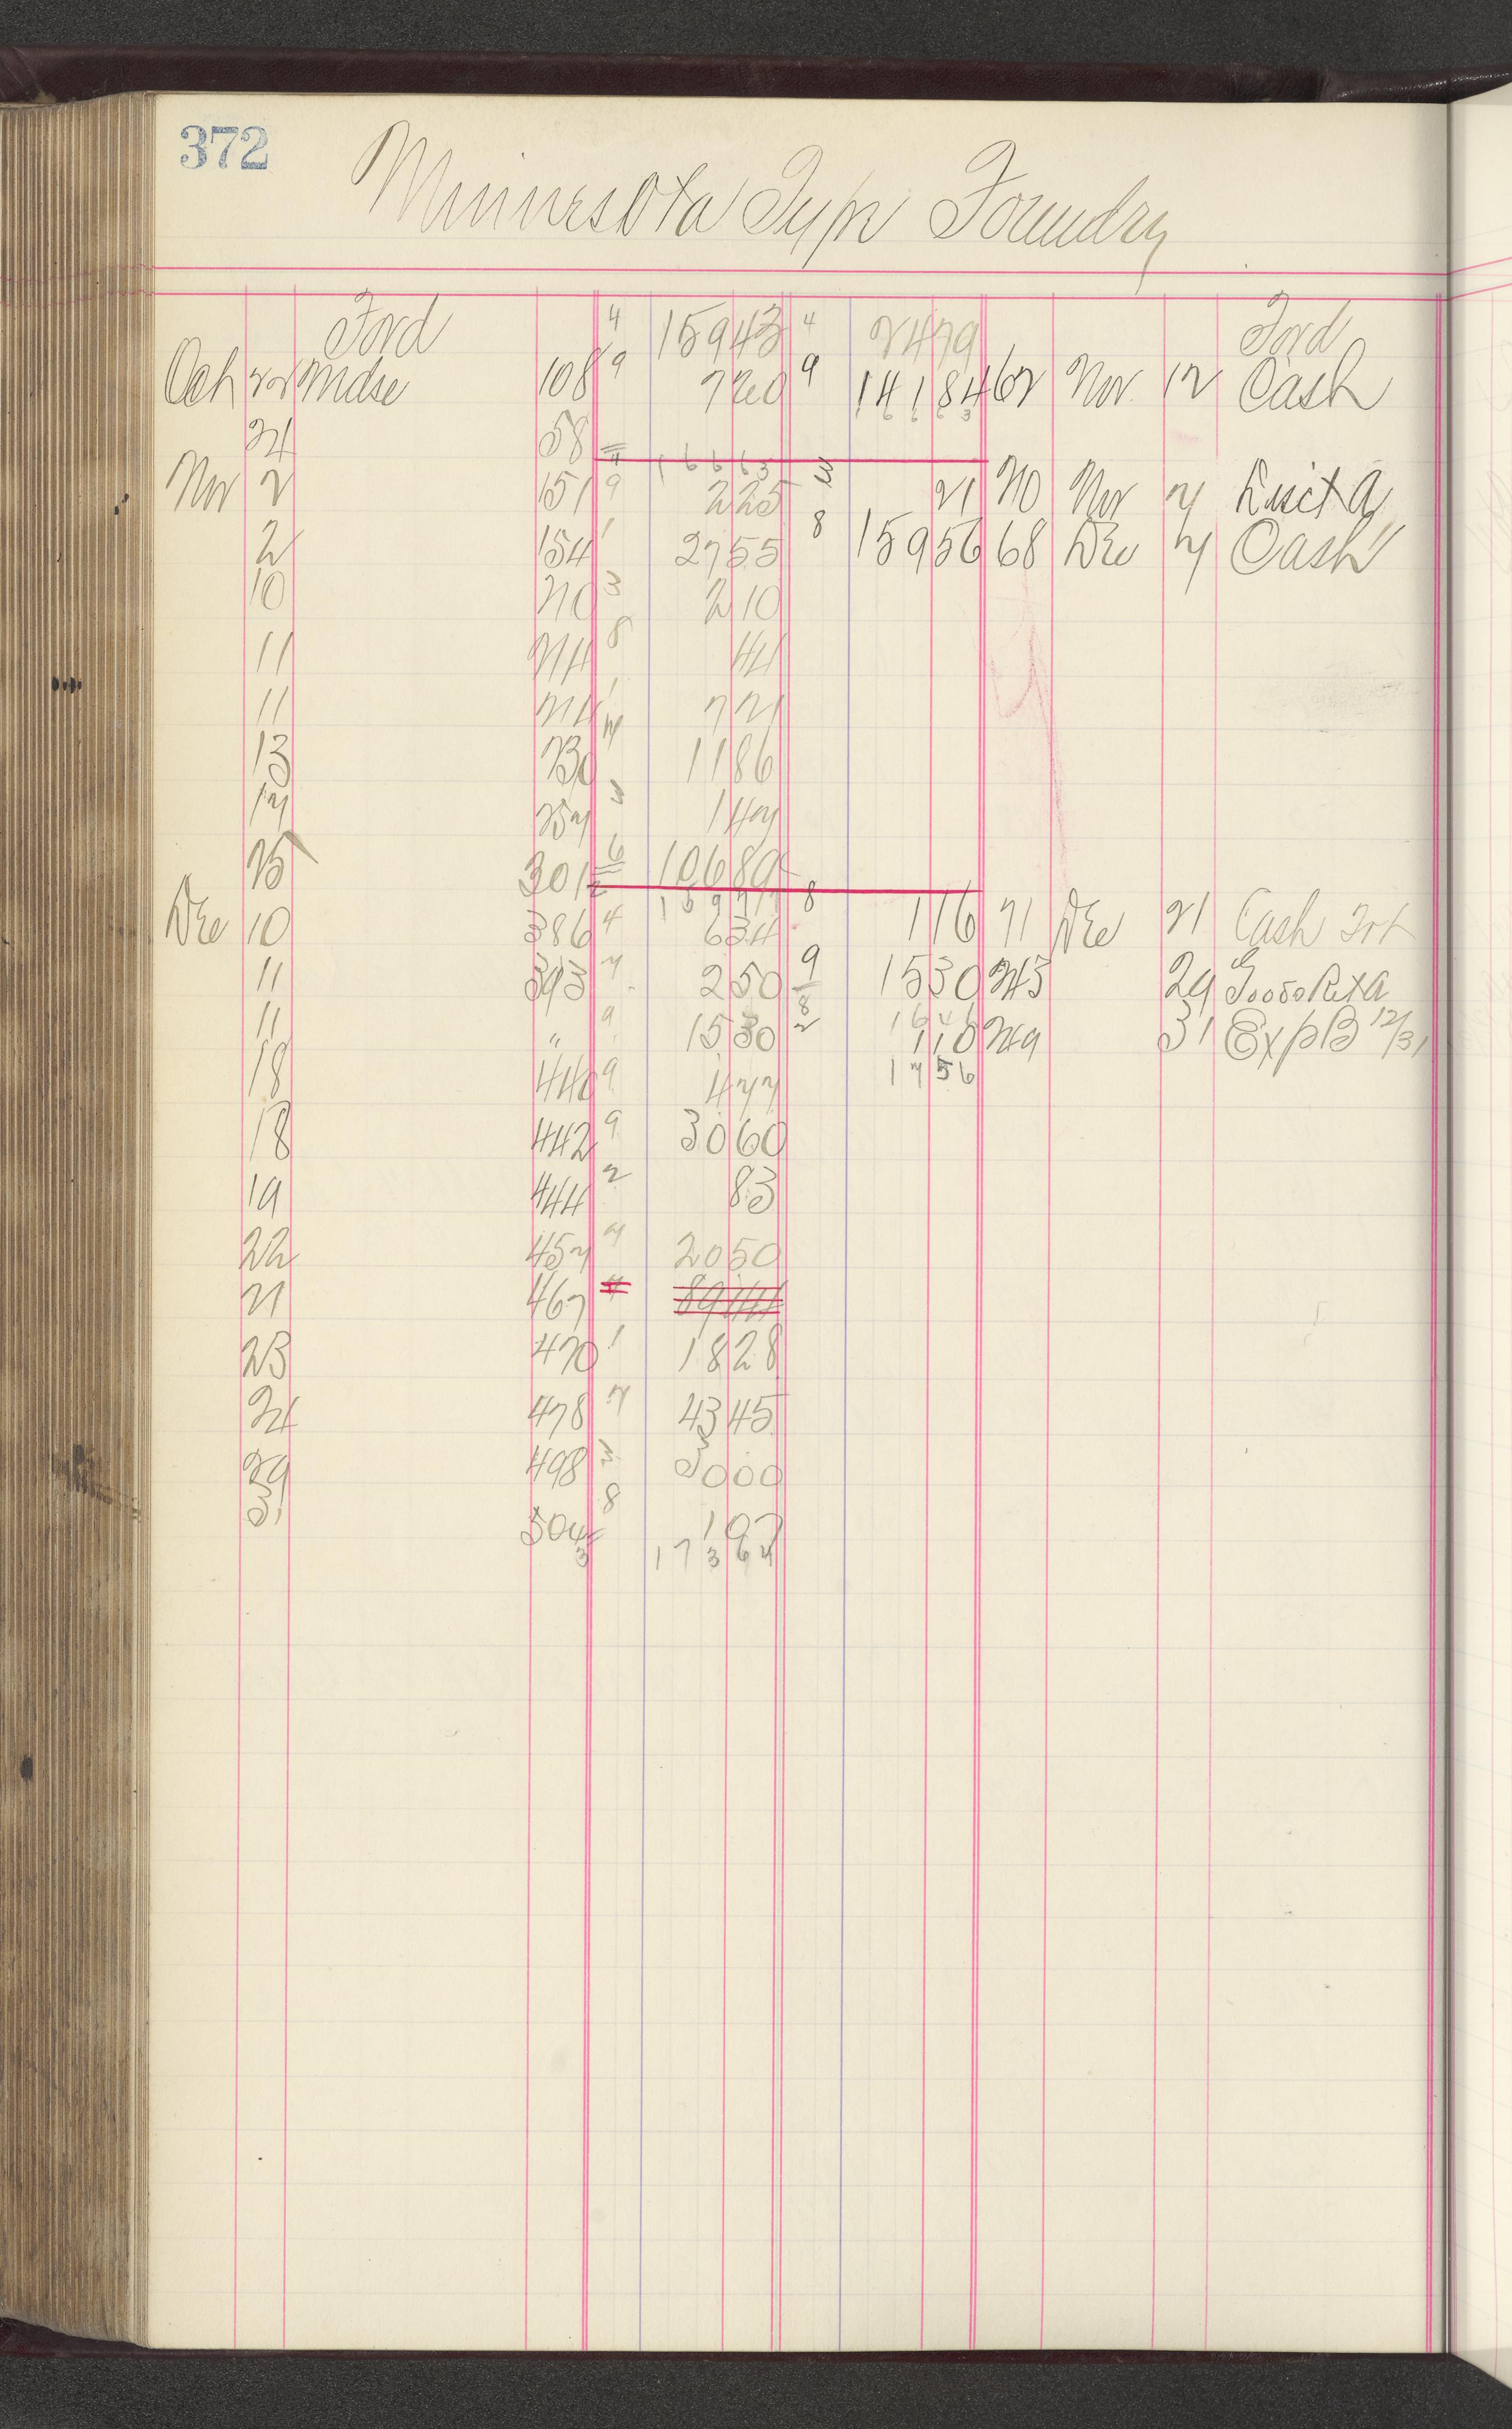 372
Minnesota Type Foundry
Ford 4 159 43 4 24 79 Ford
Oct 22 Mdse 108 9 7 20 9 141 84 62 Nov 12 Cash
24 58
4 166 63 166 63
Nov 2 151 9 2 25 3 21 210 Nov 7 Disct A
2 154 1 27 55 8 159 56 68 Dec 7 Cash
10 210 3 2 10
11 214 8 44
11 214 1 7 21
13 230 7 11 86
17 257 3 1 47
25 301 6 106 89
2 159 77 8
Dec 10 386 4 6 34 1 16 71 Dec 21 Cash Frt
11 393 7 2 50 9 15 30 243 29 Goods Ret A
8 16 46
11 " 9 15 30 2 1 10 249 31 Exp B 12/31
18 440 9 4 77 17 56
18 442 9 30 60
19 444 2 83
22 457 7 20 50
21 467 89 44
23 470 1 18 28
24 478 7 43 45
29 498 3 30 00
31 504 8 1 07
3 173 64